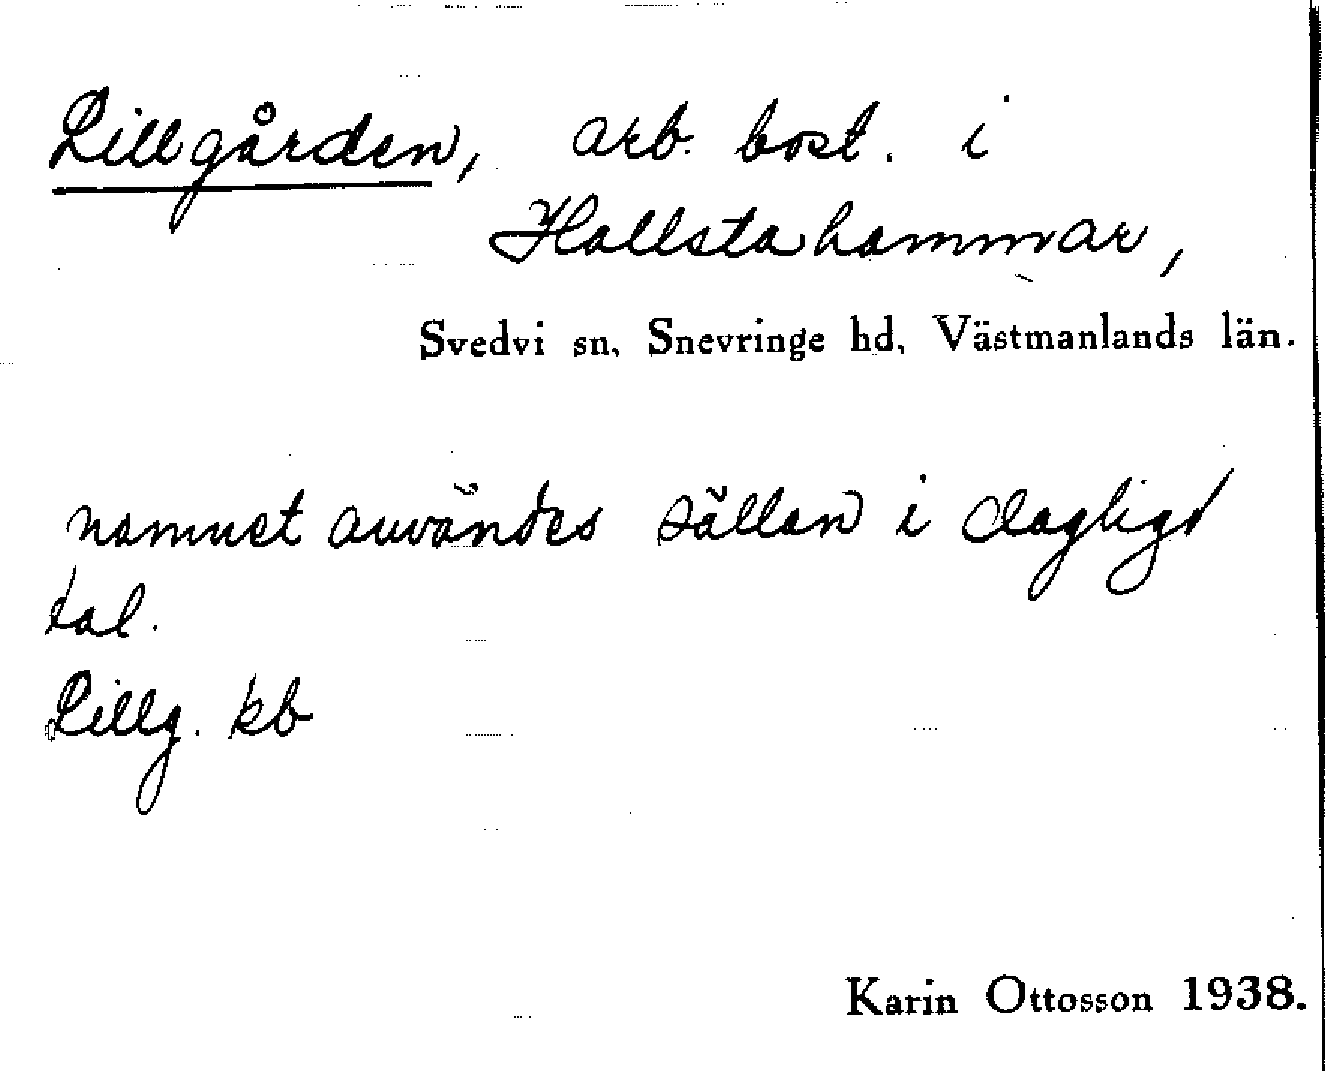 Lillgården, arb. bost. i
Hallstahammar,
Svedvi sn, Snevringe hd, Västmanlands län.
namnet användes sällan i dagligt
tal.
Lillg. kb
Karin Ottosson 1938.